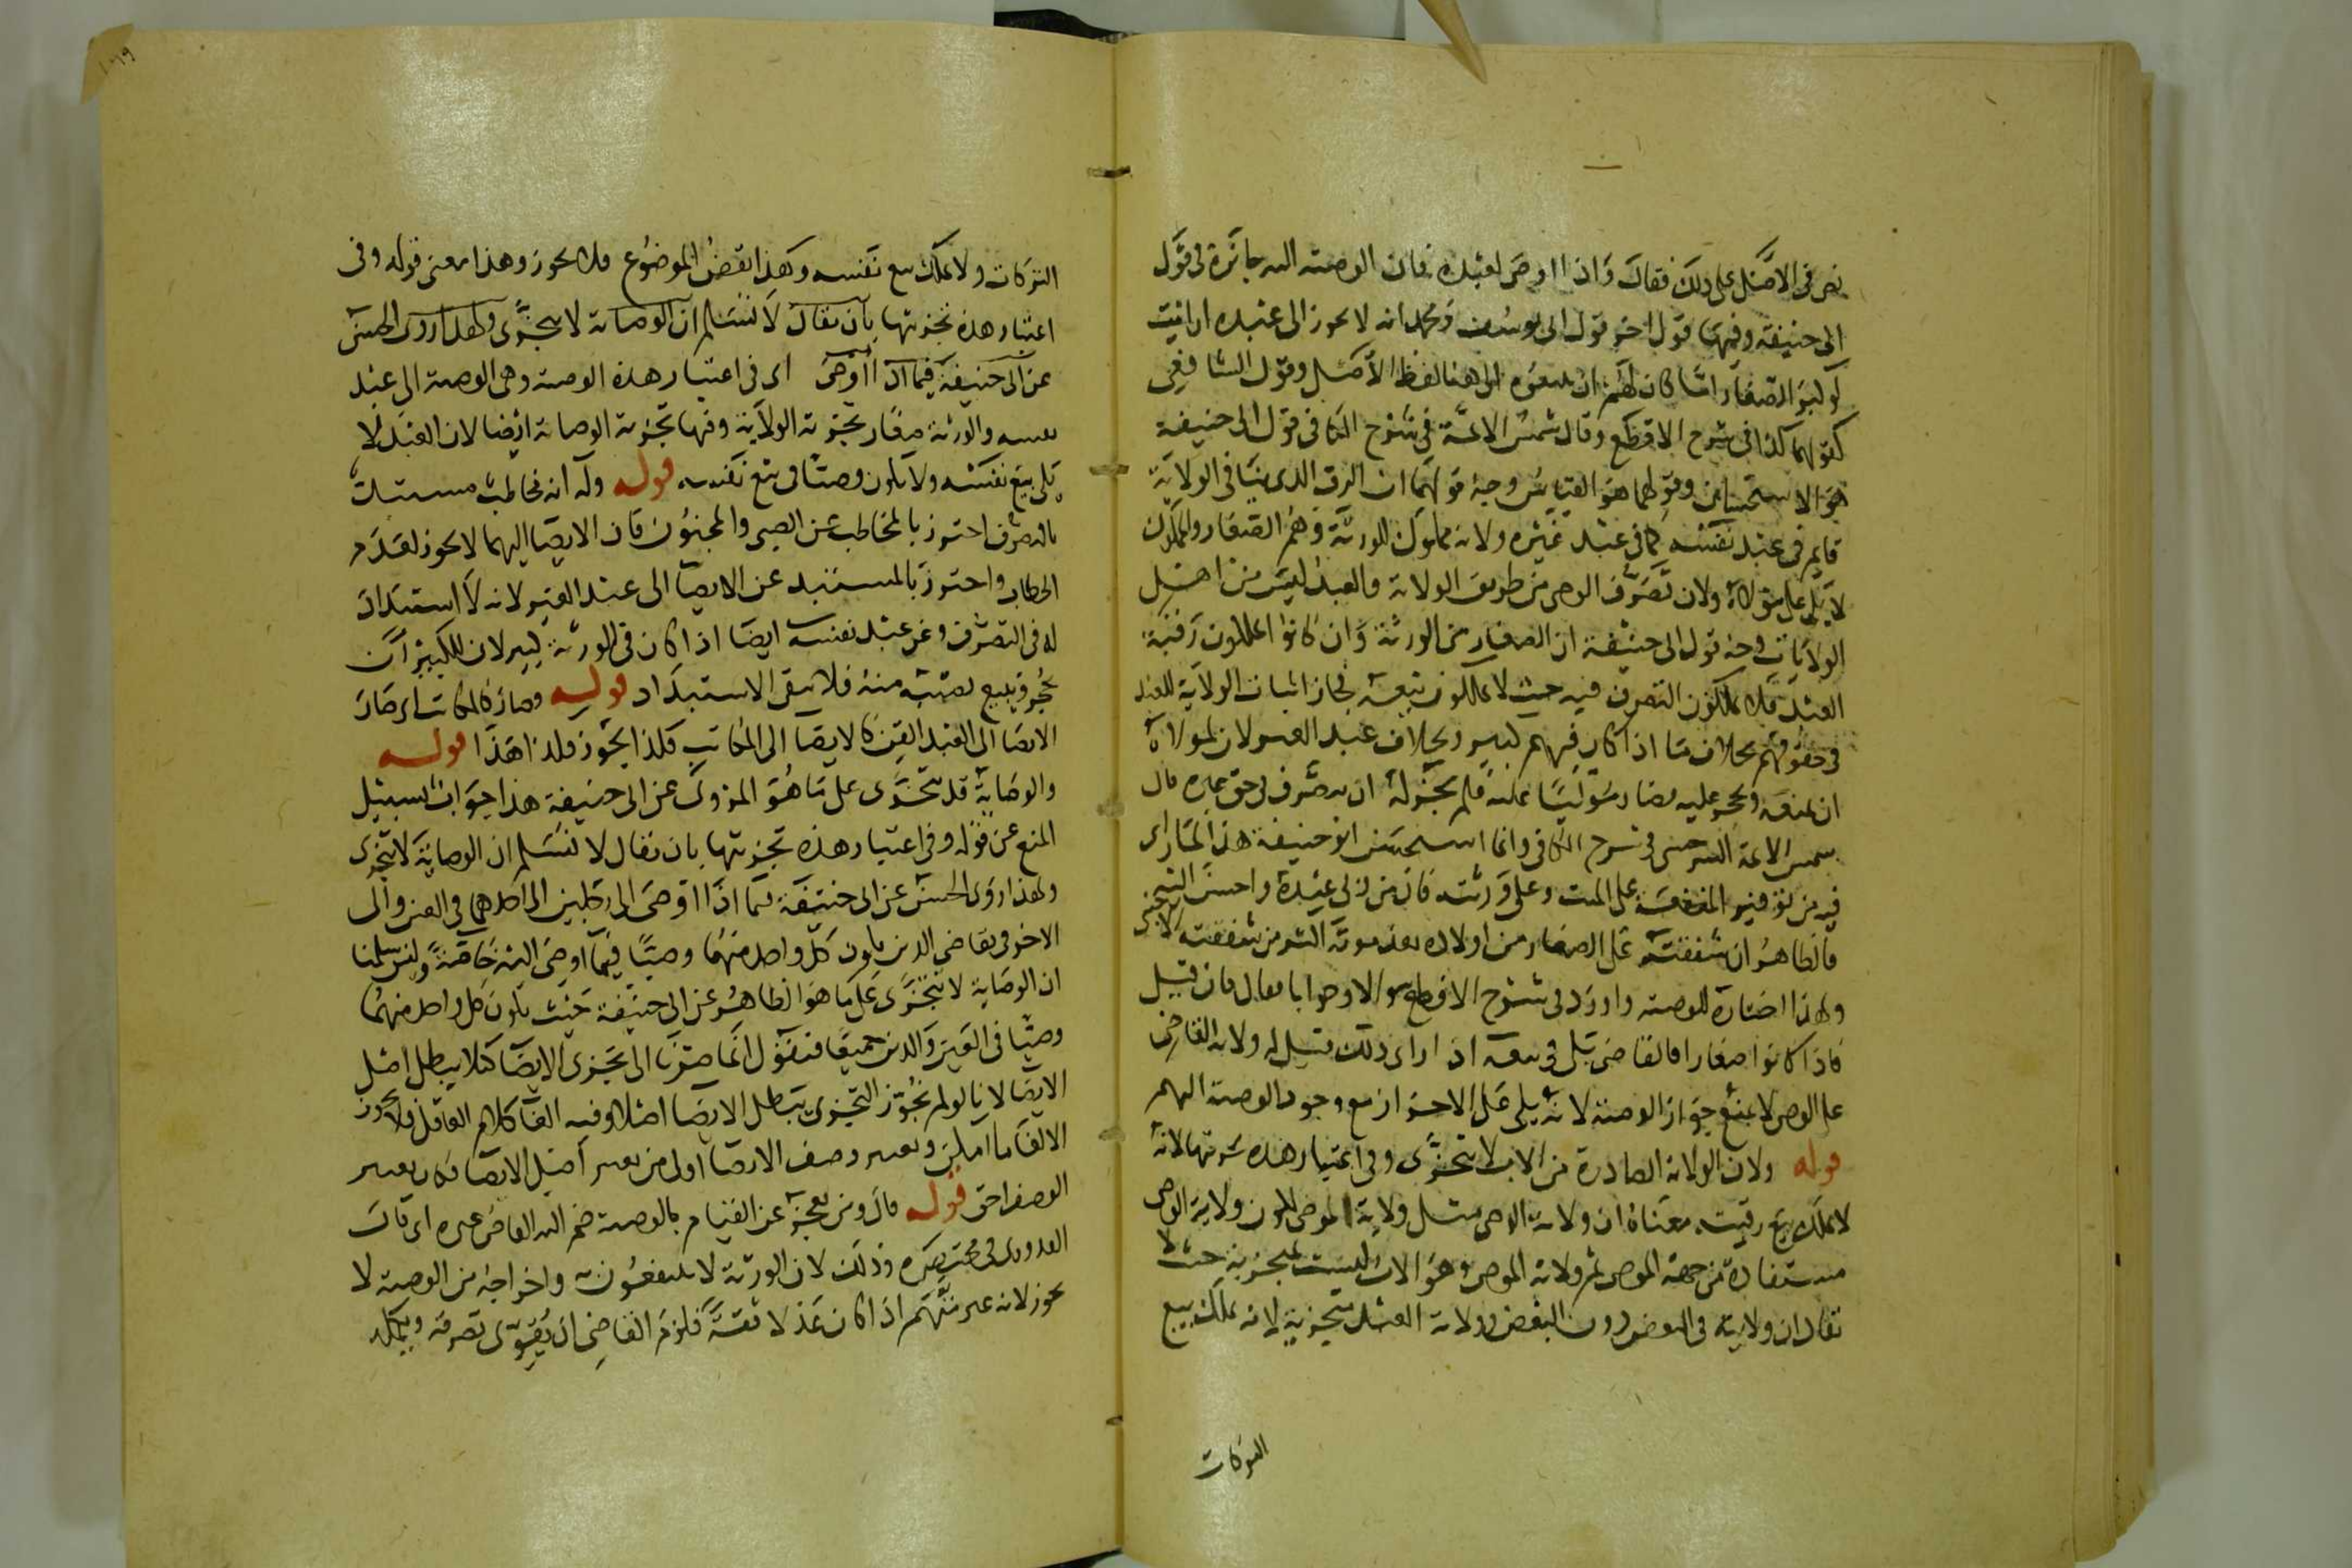 نص في الاصل على ذلك فقال واذا اوصى لعبده فان الوصية اليه جائزة في قول
ابي حنيفة وفيها قول اخر قول ابي يوسف ومحمد انه لا يجوز الى عبده ارايت
لو لبنوا الصغار اما كان لهم ان يبيعوه الى هنا لفظ الاصل وقول الشافعي
كقولهما كذا في شرح الاقطع وقال شمس الائمة في شرح الكافي قول ابي حنيفة
هو الاستحسان وقولهما هو القياس وجه قولهما ان الرق الذي ينافي الولاية
قايم في عبد نفسه كما في عبد غيره ولانه مملوك للورثة وهم الصغار والمملوك
لا يلي على مولاه ولان تصرف الوصي من طريق الولاية والعبد ليس من اهل
الولايات وجه قول ابي حنيفة ان الصغار من الورثة وان كانوا يملكون رقبة
العبد فلا يملكون التصرف فيه حيث لا يملكون بيعه فجاز اثبات الولاية للعبد
في حقوقهم بخلاف ما اذا كان فيهم كبير وبخلاف عبد الغير لان لمولاه
ان يمنعه ويحجر عليه فلم يجز له ان يتصرف في حق غيره قال
شمس الائمة السرخسي في شرح الكافي وانما استحسن ابو حنيفة هذا لما راى
فيه من توفير المنفعة على الميت وعلى ورثته فان من ربى عبده واحسن
فالظاهر ان شفقته على الصغار من اولاده بعد موته اكثر من شفقة الاجنبي
ولهذا اختاره للوصية واورد في شرح الاقطع سوالا وجوابا فقال فان قيل
فاذا كانوا صغارا فالقاضي يلي في بيعه اذا راى ذلك قيل له ولاية القاضي
على الوصي لا يمنع جواز الوصية لانه يلي على الاحرار مع وجود الوصية اليهم
قوله ولان الولاية الصادرة من الاب لا تتجزى وفي اعتبار هذه تجزيتها لانه
لا يملك بيع رقبته معناه ان ولاية الوصي مثل ولاية الموصي لكون ولاية الوصي
مستفادة من جهة الموصي ثم ولاية الموصي وهو الاب ليست بمتجزية حيث لا
يقال ان ولايته في البعض دون البعض وولاية العبد متجزية لانه يملك بيع
التركات
التركات ولا يملك بيع نفسه وهذا نقض الموضوع فلا يجوز وهذا معنى قوله وفي
اعتبار هذه تجزيتها بان يقال لا نسلم ان الوصاية لا تتجزى ولهذا روى الحسن
عن ابي حنيفة فيما اذا اوصى اى في اعتبار هذه الوصية وهي الوصية الى عبد
نفسه والورثة صغار تجزية الولاية وفيها تجزية الوصاية ايضا لان العبد لا
يلي بيع نفسه ولا يكون وصيا في بيع نفسه قوله وله انه مخاطب مستبد
بالتصرف احترز بالمخاطب عن الصبي والمجنون فان الايصا اليهما لا يجوز لعدم
الخطاب واحترز بالمستبد عن الايصا الى عبد الغير لانه لا استبداد
له في التصرف وعن عبد نفسه ايضا اذا كان في الورثة كبير لان للكبير ان
يحجر ويبيع نصيبه منه فلا يبقى الاستبداد قوله وصار كالمكاتب اى صار
الايصا الى العبد القن كالايصا الى المكاتب فكذا يجوز ذلك هذا قوله
والوصاية قد تتجزى على ما هو المروى عن ابي حنيفة هذا جواب بسبيل
المنع عن قوله وفي اعتبار هذه تجزيتها بان نقال لا نسلم ان الوصاية لا تتجزى
ولهذا روى الحسن عن ابي حنيفة فيما اذا اوصى الى رجلين الى احدهما في العين والى
الاخر في تقاضي الدين يكون كل واحد منهما وصيا فيما اوصى اليه خاصة ولئن سلمنا
ان الوصاية لا تتجزى على ما هو الظاهر عن ابي حنيفة حيث يكون كل واحد منهما
وصيا في العين والدين جميعا فنقول انما صرنا الى تجزى الايصا كيلا يبطل اصل
الايصا لانا لو لم نجوز التجزى يبطل الايصا اصلا وفيه الغا كلام العاقل ولا يجوز
الالغا ما امكن وتغيير وصف الايصا اولى من تغيير اصل الايصا فكان تغيير
الوصف احق قوله قال ومن يعجز عن القيام بالوصية ضم اليه القاضي غيره اى قال
القدوري في مختصره وذلك لان الورثة لا ينتفعون واخراجه من الوصية لا
يجوز لانه غير متهم اذا كان عدلا ثقة فلزم القاضي ان يقوى تصرفه ويكمله